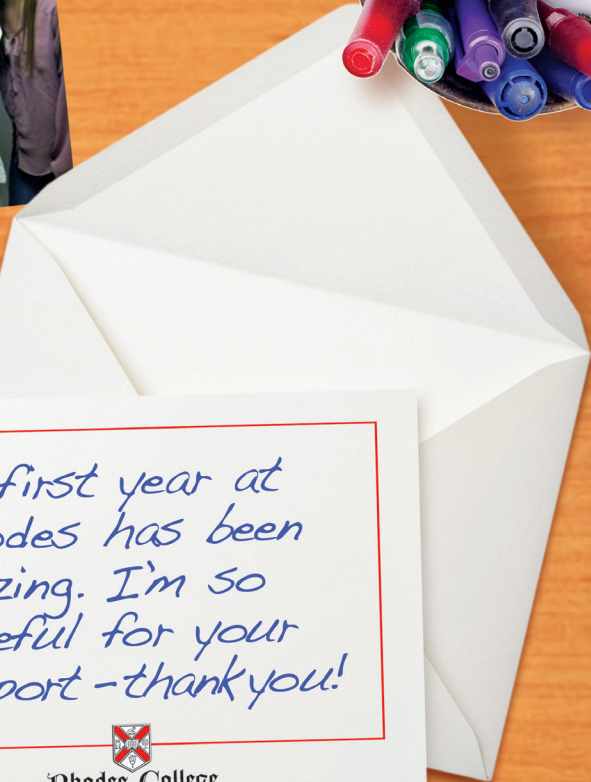 first year at
odes has been
zing. I'm so
eful for your
port - thank you!
Rhodes College